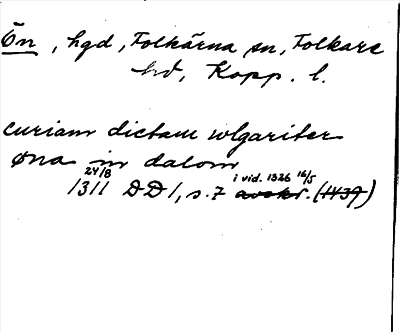 Ön, hgd, Folkärna sn, Folkare
hd, Kopp. l.
curiam dictam wlgariter
øna in dalom
24/8 i vid. 1326 16/5
1311 DD 1, s. 7 avskr. (1439)